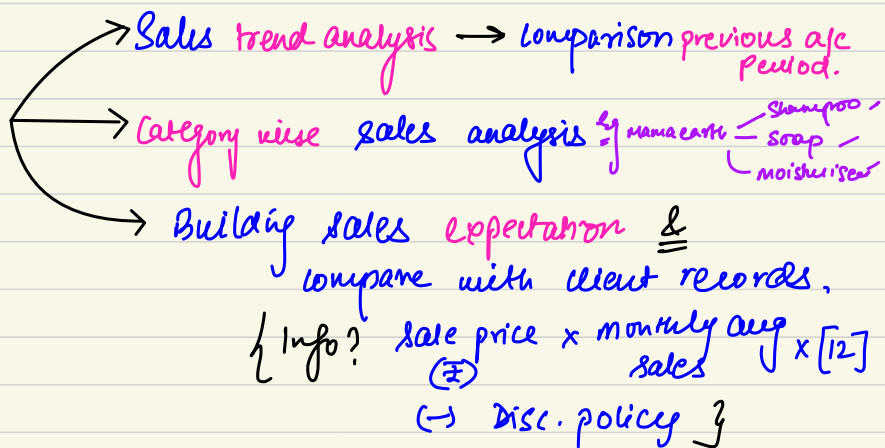 Sales trend analysis → Comparison previous a/c period.
Category wise sales analysis eg mamaearth
Shampoo
Soap
moisturiser
Building sales expectation &
compare with client records.
{ Info? sale price x monthly avg sales x [12]
(₹)
(-) Disc. policy }